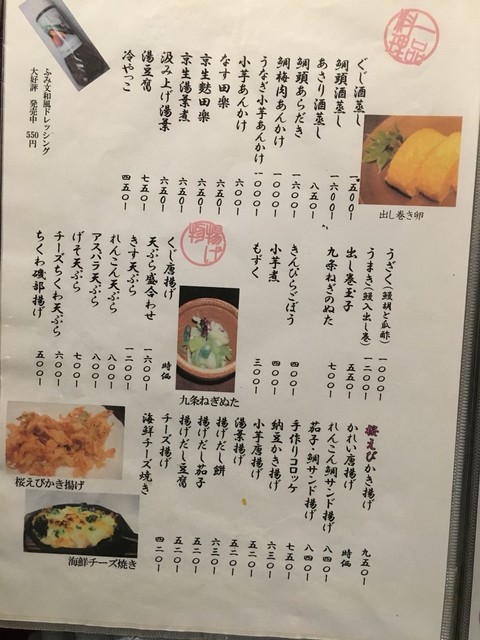 一品料理
ぐじ酒蒸し 一、五〇〇ー
鯛頭酒蒸し 一六〇〇ー
あさり酒蒸し 八五〇ー
鯛頭あらだき 一六〇〇ー
鯛梅肉あんかけ 一〇〇〇ー
うなぎ小芋あんかけ 一〇〇〇ー
小芋あんかけ 六〇〇ー
なす田楽 六五〇ー
京生麩田楽 六五〇ー
京生湯葉煮 六五〇ー
汲み上げ湯葉 六五〇ー
湯豆腐 七五〇ー
冷やっこ 四五〇ー
ふみ文和風ドレッシング
大好評 発売中 550円
出し巻き卵
うざく(鰻胡と瓜酢) 一〇〇〇ー
うまき(鰻入出し巻) 一二〇〇ー
出し巻玉子 五五〇ー
九条ねぎのぬた 七〇〇ー
きんぴらごぼう 四〇〇ー
小芋煮 四〇〇ー
もずく 三〇〇ー
九条ねぎぬた
揚げ物
くじ唐揚げ 時価
天ぷら盛合わせ 一六〇〇ー
きす天ぷら 一二〇〇ー
れんこん天ぷら 八〇〇ー
アスパラ天ぷら 八〇〇ー
げそ天ぷら 七〇〇ー
チーズちくわ天ぷら 六〇〇ー
ちくわ磯部揚げ 五〇〇ー
桜えびかき揚げ 九五〇ー
かれい唐揚げ 時価
れんこん鯛サンド揚げ 八四〇ー
茄子・鯛サンド揚げ 八四〇ー
手作りコロッケ 七五〇ー
納豆かき揚げ 六三〇ー
小芋唐揚げ 五二〇ー
湯葉揚げ 五二〇ー
揚げだし餅 六三〇ー
揚げだし茄子 五二〇ー
揚げだし豆腐 五二〇ー
チーズ揚げ 五二〇ー
海鮮チーズ焼き 四二〇ー
桜えびかき揚げ
海鮮チーズ焼き